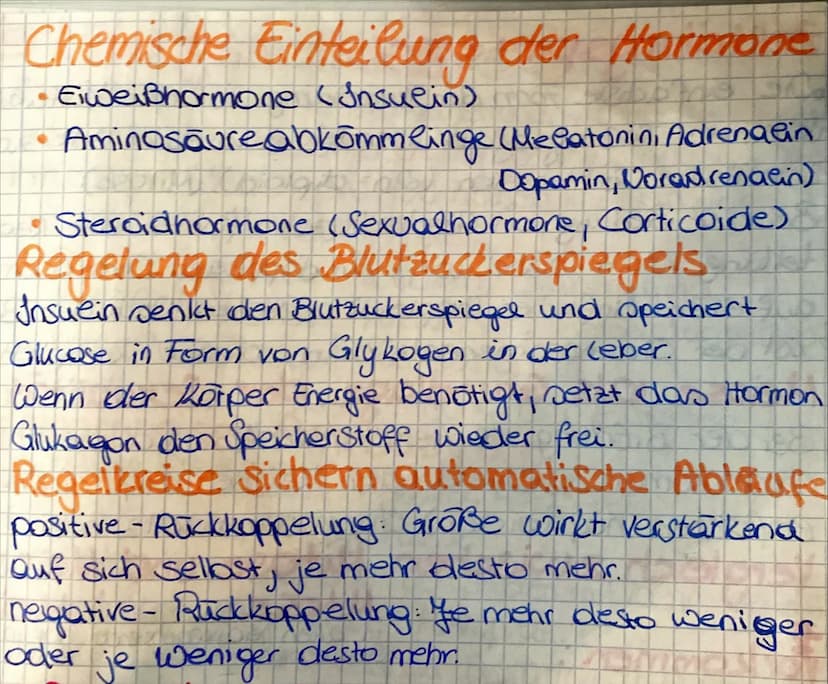 Chemische Einteilung der Hormone
• Eiweißhormone (Insulin)
• Aminosäureabkömmlinge (Melatonin, Adrenalin
Dopamin, Noradrenalin)
• Steroidhormone (Sexualhormone, Corticoide)
Regelung des Blutzuckerspiegels
Insulin senkt den Blutzuckerspiegel und speichert
Glucose in Form von Glykogen in der Leber.
Wenn der Körper Energie benötigt, setzt das Hormon
Glukagon den Speicherstoff wieder frei.
Regelkreise sichern automatische Abläufe
positive - Rückkoppelung: Größe wirkt verstärkend
auf sich selbst, je mehr desto mehr.
negative - Rückkoppelung: Je mehr desto weniger
oder je weniger desto mehr.